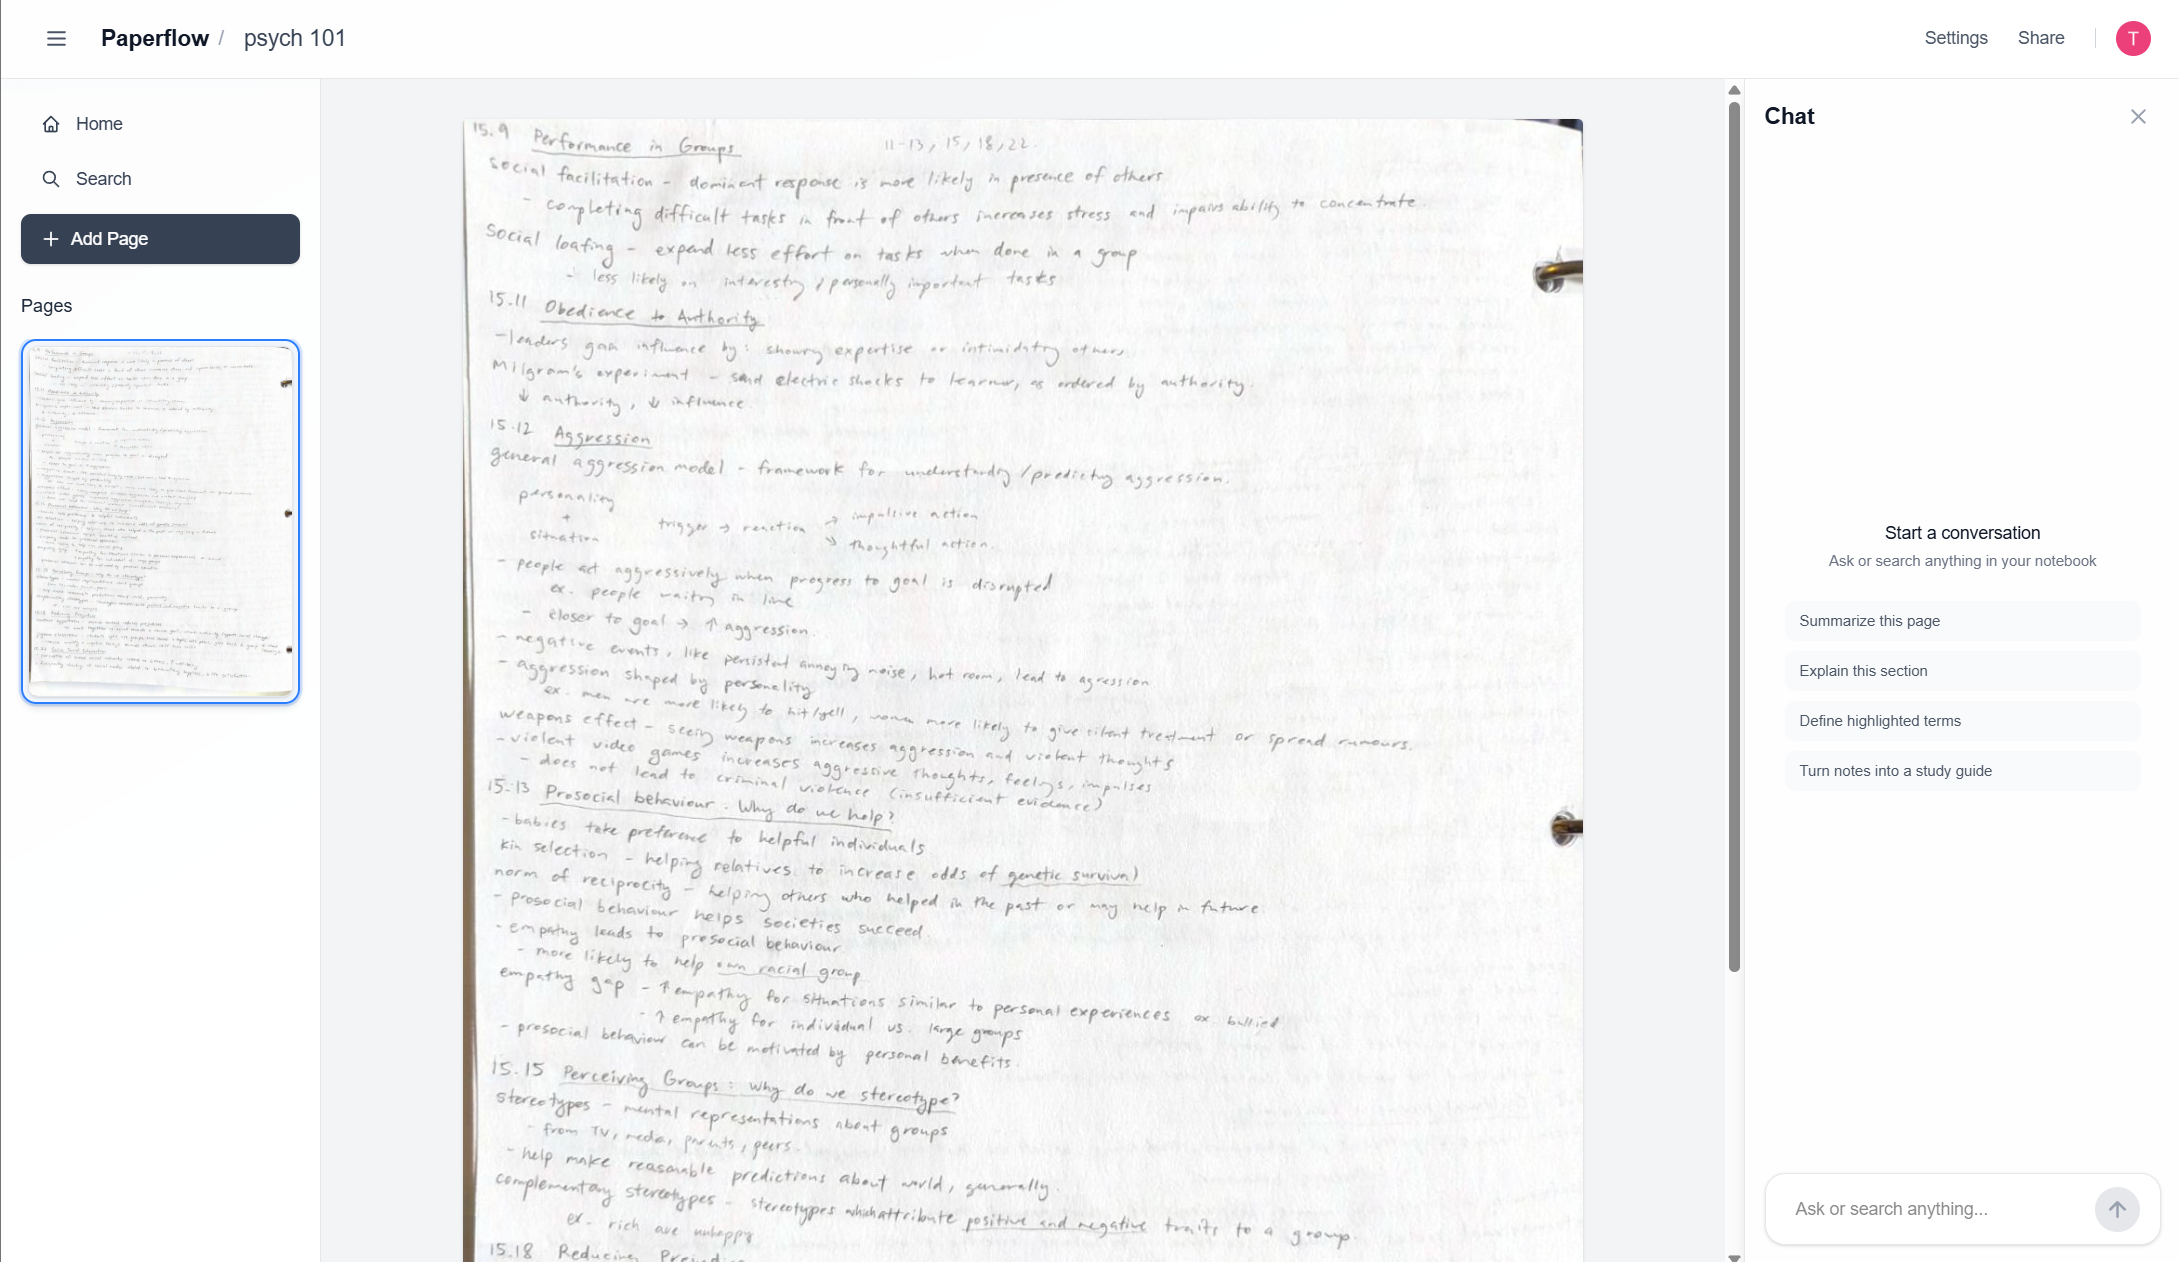 Paperflow / psych 101
Settings
Share
T
Home
Search
+ Add Page
Pages
15.9 Performance in Groups 11-13, 15, 18, 22.
social facilitation - dominant response is more likely in presence of others
- completing difficult tasks in front of others increases stress and impairs ability to concentrate.
Social loafing - expend less effort on tasks when done in a group
- less likely on interesting / personally important tasks
15.11 Obedience to Authority
- leaders gain influence by: showing expertise or intimidating others
Milgram's experiment - send electric shocks to learner, as ordered by authority.
↓ authority, ↓ influence
15.12 Aggression
general aggression model - framework for understanding / predicting aggression.
personality
+
situation
trigger → reaction
↗ impulsive action
↘ thoughtful action.
- people act aggressively when progress to goal is disrupted
ex. people waiting in line
- closer to goal → ↑ aggression
- negative events, like persistent annoying noise, hot room, lead to agression
- aggression shaped by personality
ex. men are more likely to hit/yell, women more likely to give silent treatment or spread rumours.
weapons effect - seeing weapons increases aggression and violent thoughts
- violent video games increases aggressive thoughts, feelings, impulses
- does not lead to criminal violence (insufficient evidence)
15.13 Prosocial behaviour: Why do we help?
- babies take preference to helpful individuals
kin selection - helping relatives to increase odds of genetic survival
norm of reciprocity - helping others who helped in the past or may help in future
- prosocial behaviour helps societies succeed.
- empathy leads to prosocial behaviour
- more likely to help own racial group
empathy gap - ↑ empathy for situations similar to personal experiences ex. bullied
- ↑ empathy for individual vs. large groups
- prosocial behaviour can be motivated by personal benefits.
15.15 Perceiving Groups: why do we stereotype?
stereotypes - mental representations about groups
- from TV, media, parents, peers.
- help make reasonable predictions about world, generally.
complementary stereotypes - stereotypes which attribute positive and negative traits to a group.
ex. rich are unhappy
15.18 Reducing
Chat
Start a conversation
Ask or search anything in your notebook
Summarize this page
Explain this section
Define highlighted terms
Turn notes into a study guide
Ask or search anything...